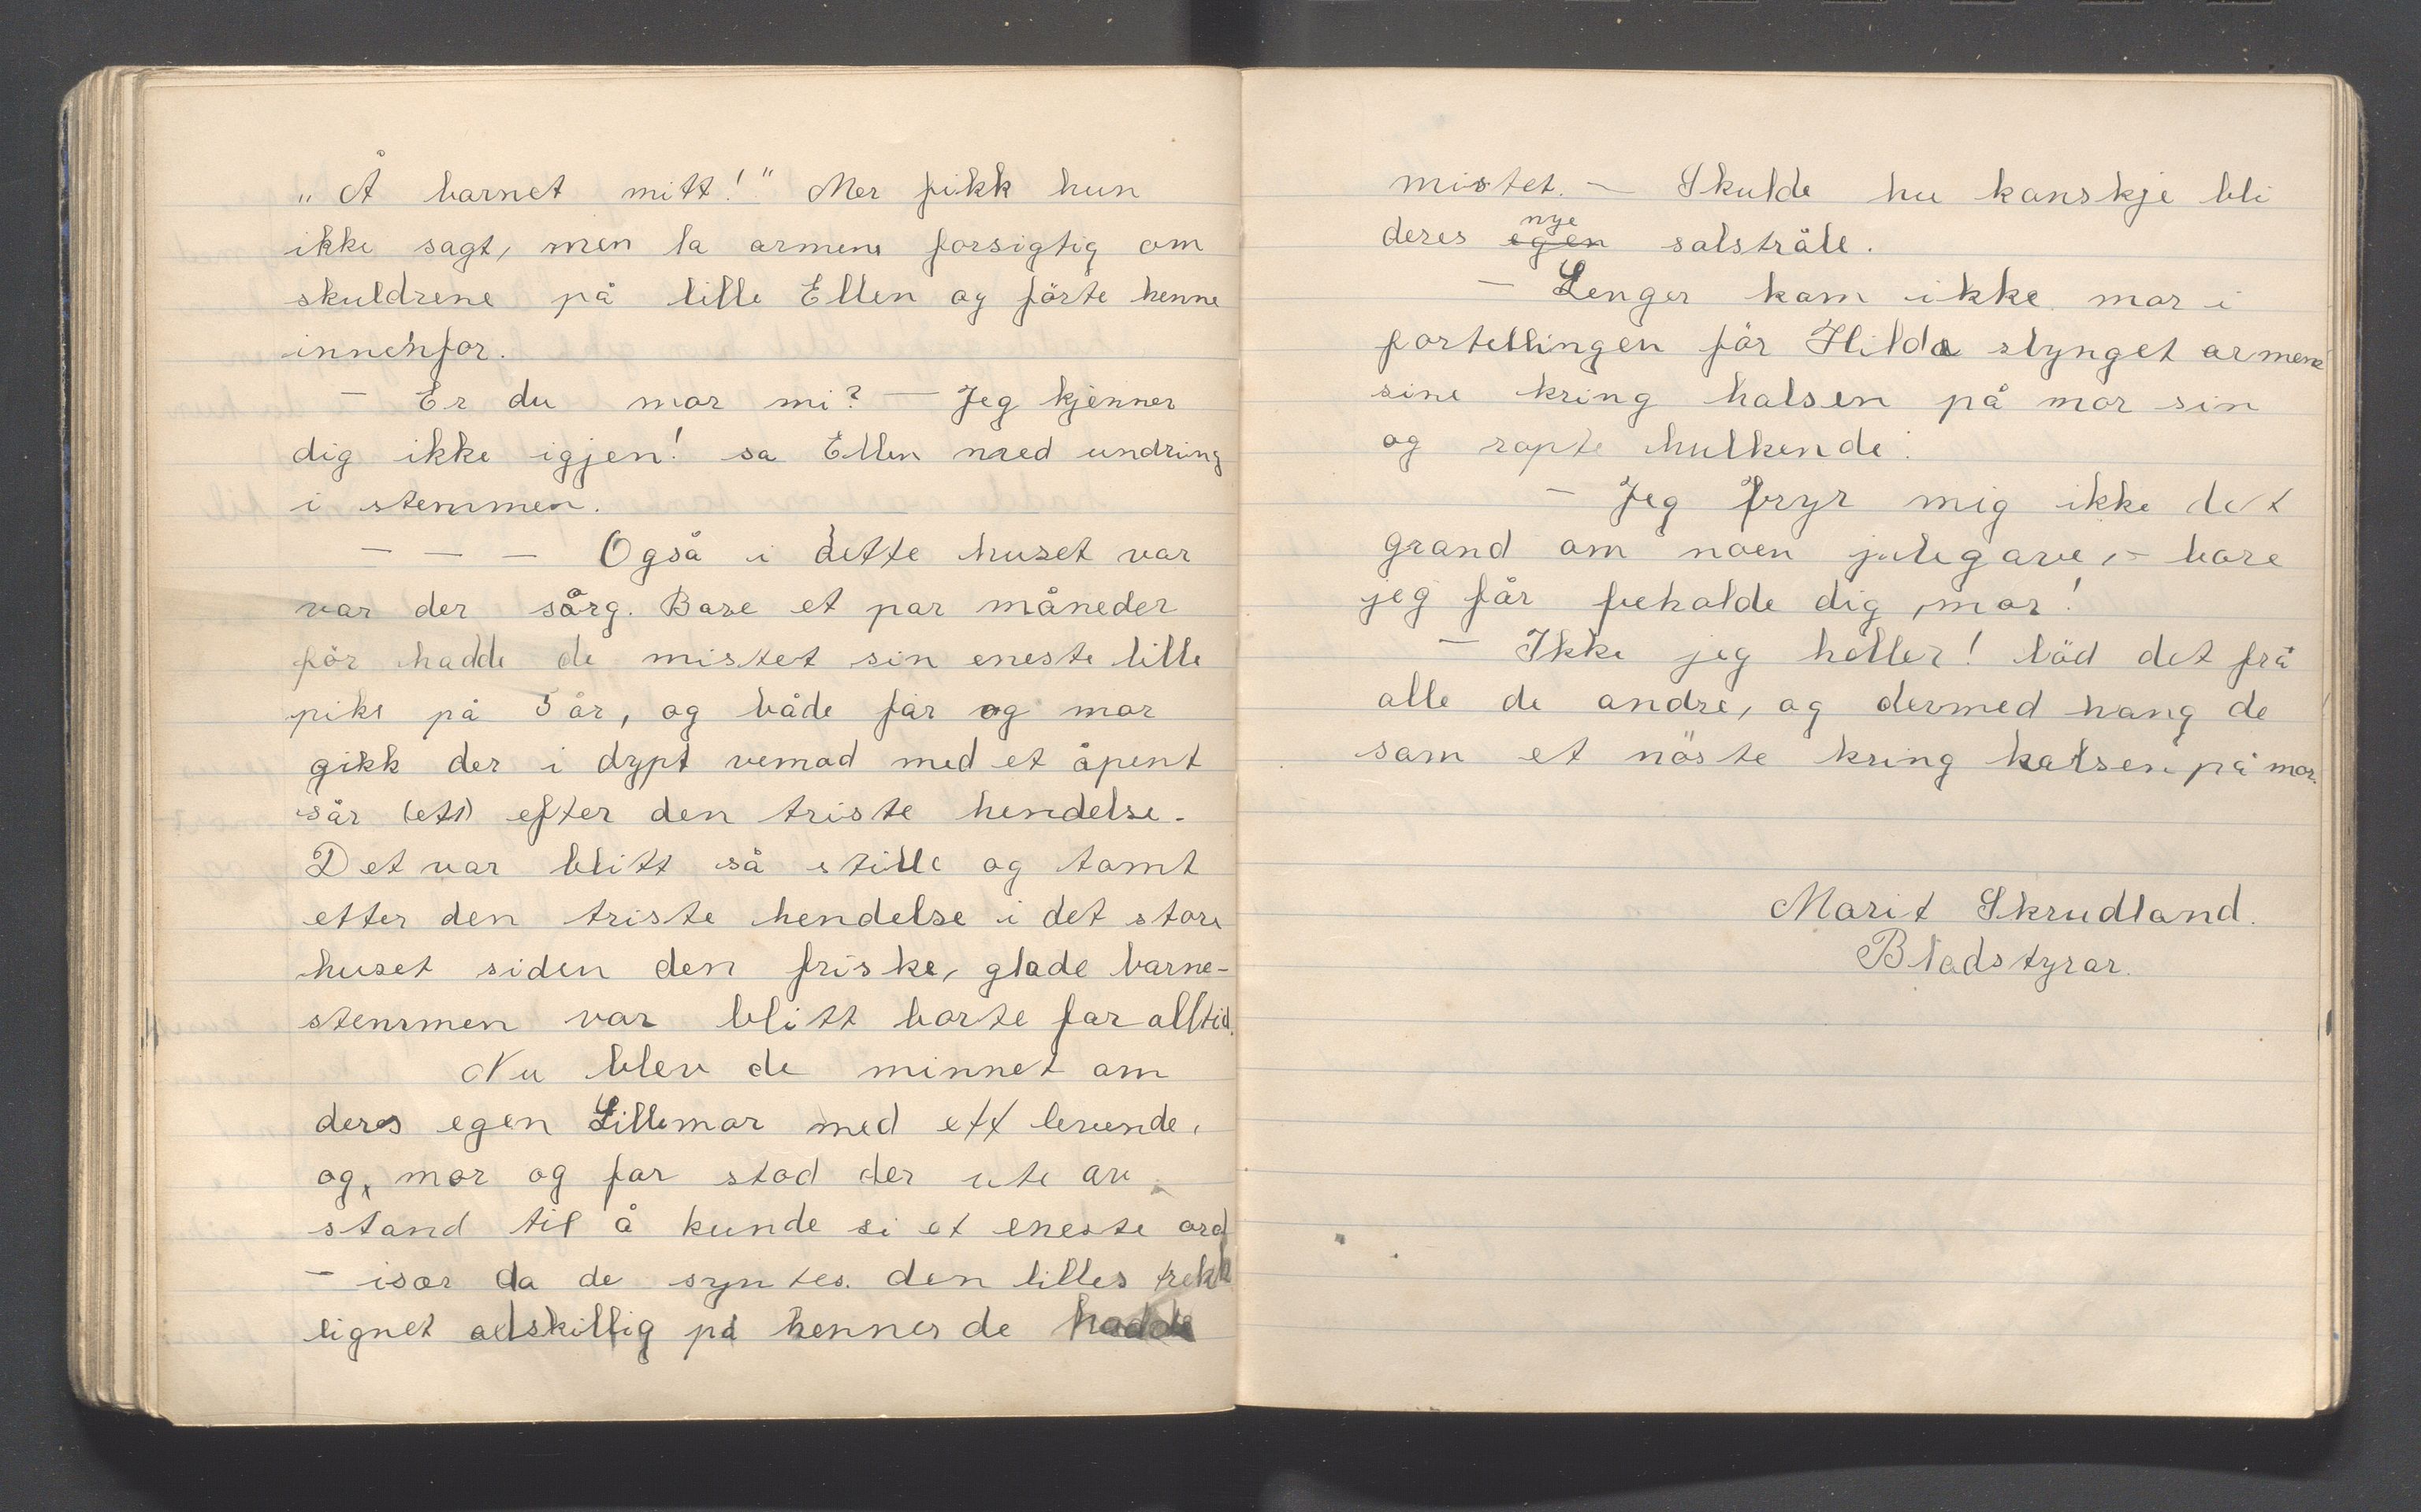 „Å barnet mitt!" Mer fikk hun
ikke sagt, men la armene forsigtig om
skuldrene på lille Ellen og förte henne
innenfor.
— Er du mor mi? — Jeg kjenner
dig ikke igjen! sa Ellen med undring
i stemmen.
— — — Også i dette huset var
var der sorg. Bare et par måneder
för hadde de mistet sin eneste lille
pike på 5 år, og både far og mor
gikk der i dypt vemod med et åpent
sår (ett) efter den triste hendelse.
Det var blitt så stille og tomt
etter den triste hendelse i det store
huset siden den friske, glade barne-
stemmen var blitt borte for alltid.
Nu blev de minnet om
deres egen Lillemor med ett levende,
og, mor og far stod der ute av
stand til å kunde si et eneste ord
— især da de syntes den lilles trekk
lignet adskillig på hennes de hadde
mistet. — Skulde hu kanskje bli
nye
deres egen solstråle.
— Lenger kom ikke mor i
fortellingen för Hilda slynget armene
sine kring halsen på mor sin
og ropte hulkende:
— Jeg bryr mig ikke det
grand om noen julegave, — bare
jeg får beholde dig, mor!
— Ikke jeg heller! löd det frå
alle de andre, og dermed hang de
som et nöste kring halsen på mor.
Marit Skrudland.
Bladstyrar.